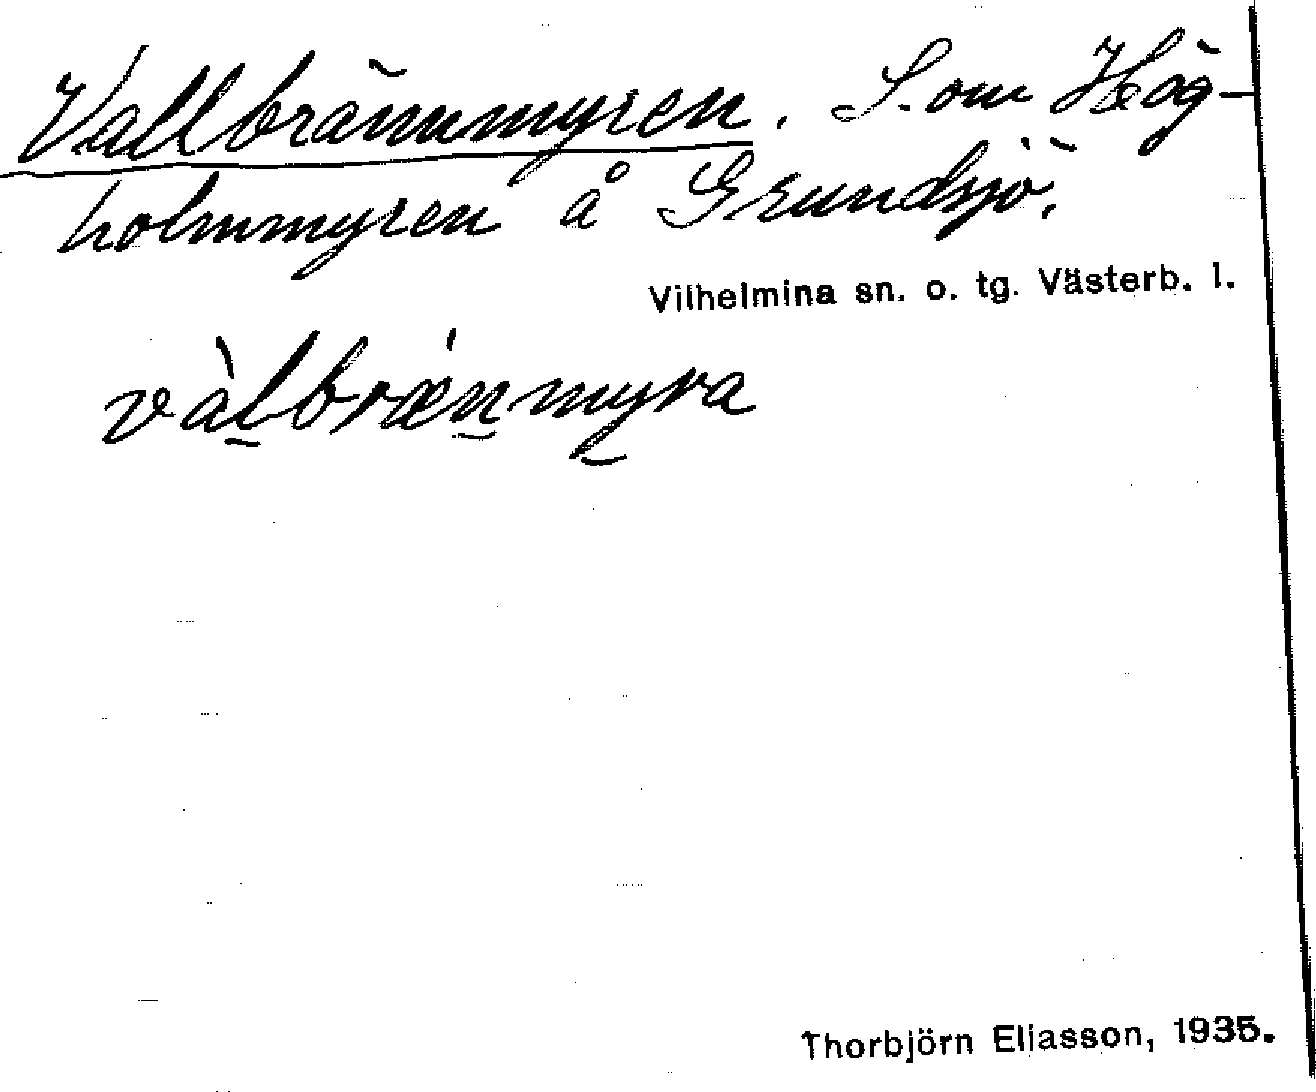 Vallbrännmyren. Som Hög-
holmmyren å Grundsjö.
Vilhelmina sn. o. tg. Västerb. l.
vàl̲bræ̀n̲my̲ra
Thorbjörn Eliasson, 1935.